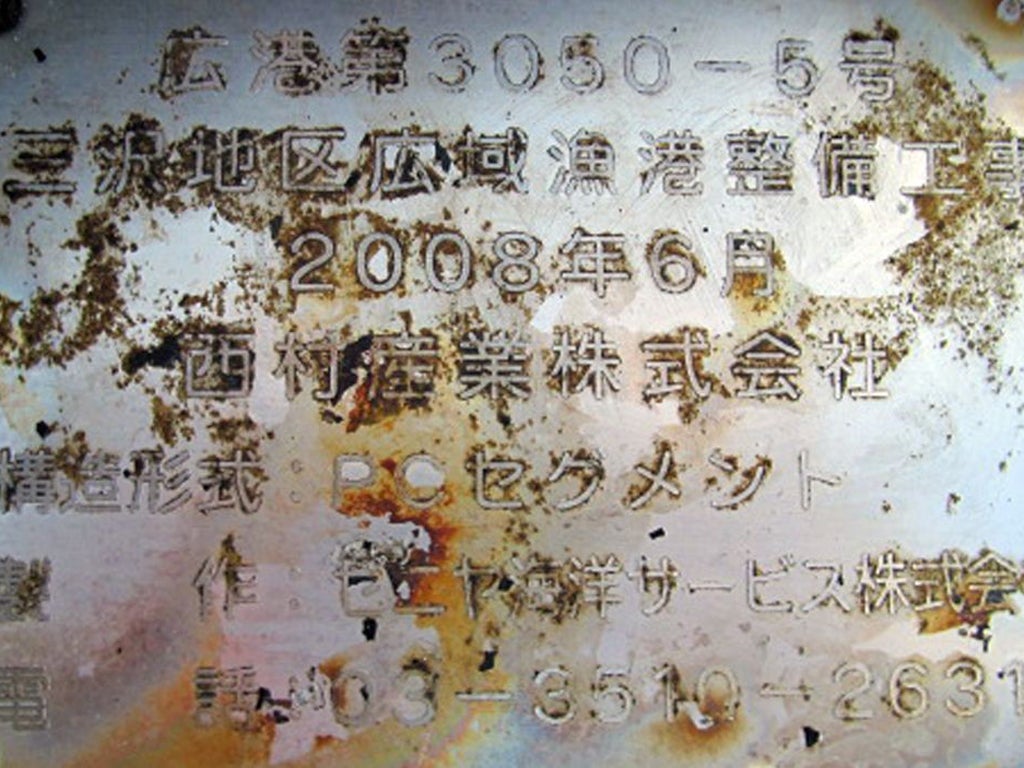 広港第3050-5号
三沢地区広域漁港整備工事
2008年6月
西村産業株式会社
構造形式:PCセグメント
製作:ゼニヤ海洋サービス株式会
電話:03-3510-2631